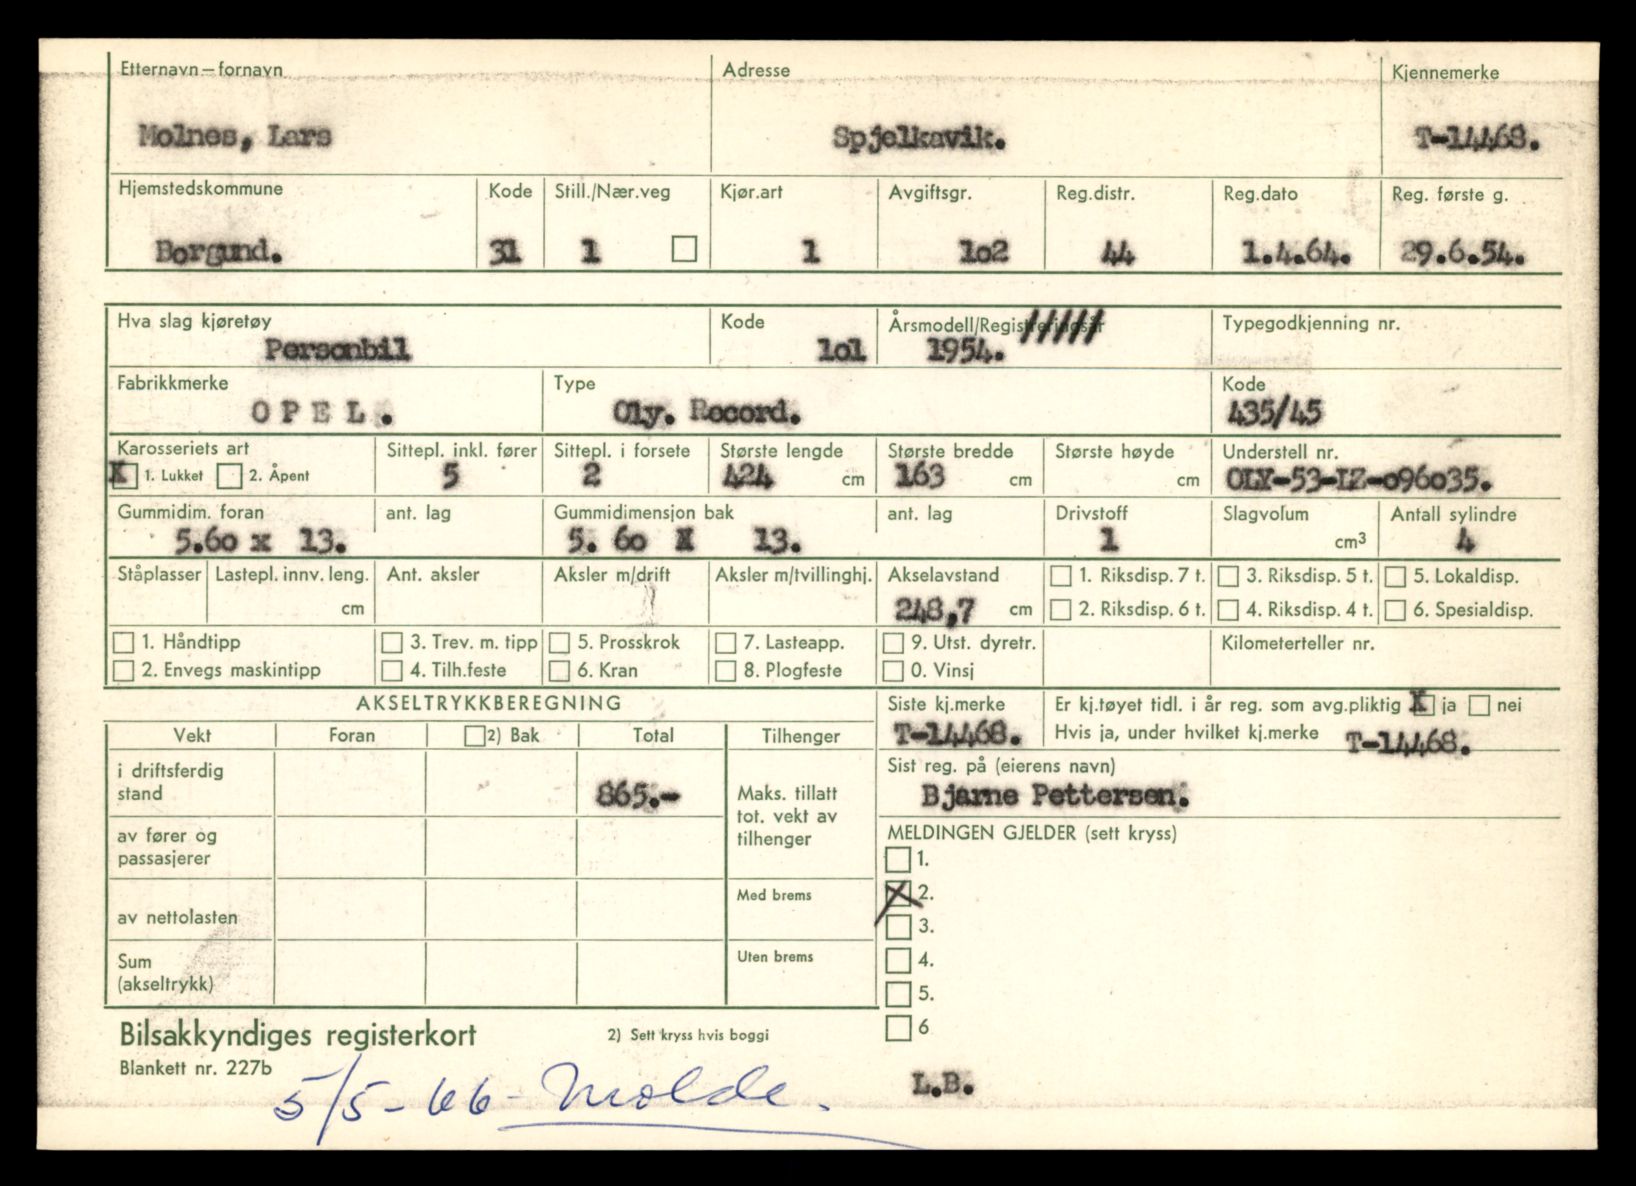 Etternavn — fornavn Adresse Kjennemerke
Molnes, Lars Spjelkavik. T-14468.
Hjemstedskommune Kode Still./Nær.veg Kjør.art Avgiftsgr. Reg.distr. Reg.dato Reg. første g.
Borgund. 31 1 1 1o2 44 1.4.64. 29.6.54.
Hva slag kjøretøy Kode Årsmodell/Registreringsår Typegodkjenning nr.
Personbil 1o1 1954.
Fabrikkmerke Type Kode
OPEL. Oly. Record. 435/45
Karosseriets art Sittepl. inkl. fører Sittepl. i forsete Største lengde Største bredde Største høyde Understell nr.
X 1. Lukket 2. Åpent 5 2 424 cm 163 cm cm OLY-53-LZ-o96o35.
Gummidim. foran ant. lag Gummidimensjon bak ant. lag Drivstoff Slagvolum Antall sylindre
5.6o x 13. 5. 6o X 13. 1 cm3 4
Ståplasser Lastepl. innv. leng. Ant. aksler Aksler m/drift Aksler m/tvillinghj. Akselavstand 1. Riksdisp. 7 t. 3. Riksdisp. 5 t. 5. Lokaldisp.
cm 248,7 cm 2. Riksdisp. 6 t. 4. Riksdisp. 4 t. 6. Spesialdisp.
1. Håndtipp 3. Trev. m. tipp 5. Prosskrok 7. Lasteapp. 9. Utst. dyretr. Kilometerteller nr.
2. Envegs maskintipp 4. Tilh.feste 6. Kran 8. Plogfeste 0. Vinsj
AKSELTRYKKBEREGNING Siste kj.merke Er kj.tøyet tidl. i år reg. som avg.pliktig X ja nei
Vekt Foran 2) Bak Total Tilhenger T-14468. Hvis ja, under hvilket kj.merke T-14468.
i driftsferdig stand 865.- Maks. tillatt tot. vekt av tilhenger
Sist reg. på (eierens navn)
Bjarne Pettersen.
av fører og passasjerer
MELDINGEN GJELDER (sett kryss)
1.
av nettolasten Med brems X 2.
3.
Sum (akseltrykk) Uten brems 4.
5.
6
Bilsakkyndiges registerkort 2) Sett kryss hvis boggi
Blankett nr. 227b
5/5-66- Molde. L.B.